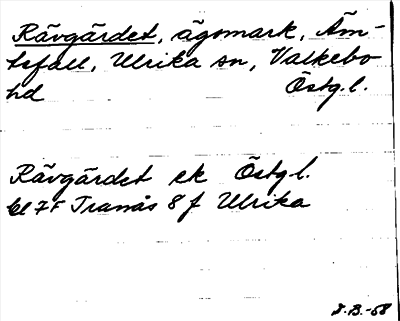 Rävgärdet, ägomark, Äm-
tefall, Ulrika sn, Valkebo
hd Östg.l.
Rävgärdet ek Östg.l.
bl 7F Tranås 8 f Ulrika
J.B.-68